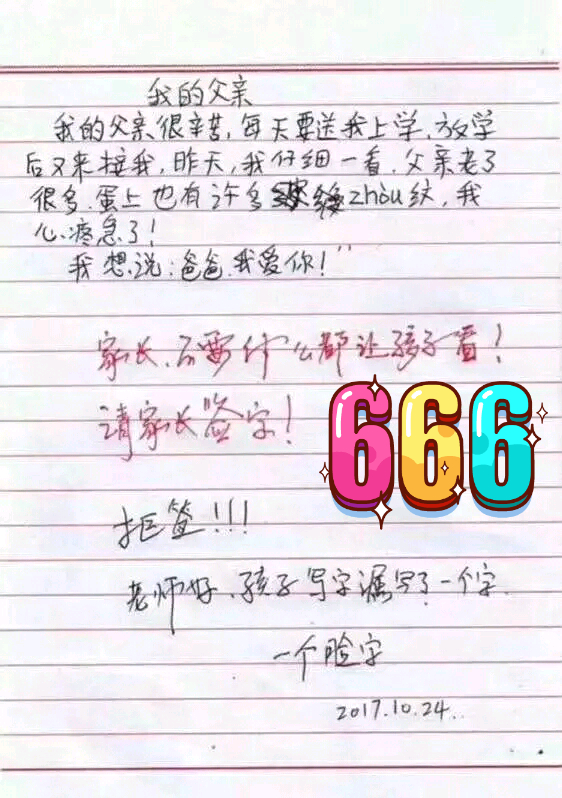 我的父亲
我的父亲很辛苦,每天要送我上学,放学
后又来接我,昨天,我仔细一看,父亲老了
很多,蛋上也有许多zhòu纹,我
心疼急了!
我想说:爸爸,我爱你!”
家长,不要什么都让孩子看!
请家长签字!
666
拒签!!!
老师好,孩子写字漏写了一个字.
一个脸字
2017.10.24..